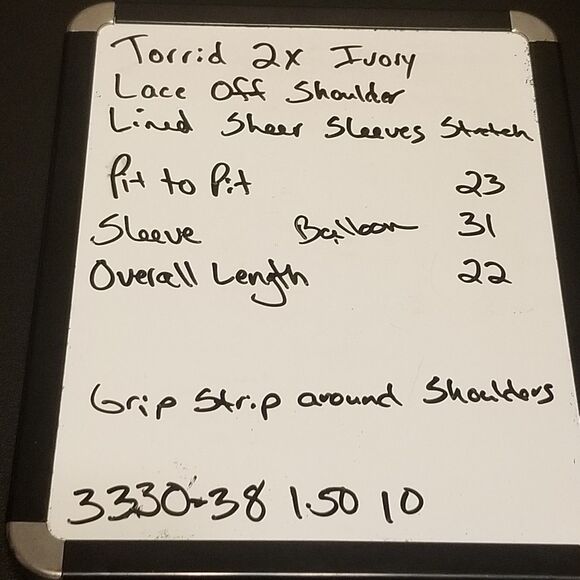 Torrid 2x Ivory
Lace Off Shoulder
Lined Sheer Sleeves Stretch
Pit to Pit 23
Sleeve Balloon 31
Overall Length 22
Grip Strip around Shoulders
3330-38 1.50 10